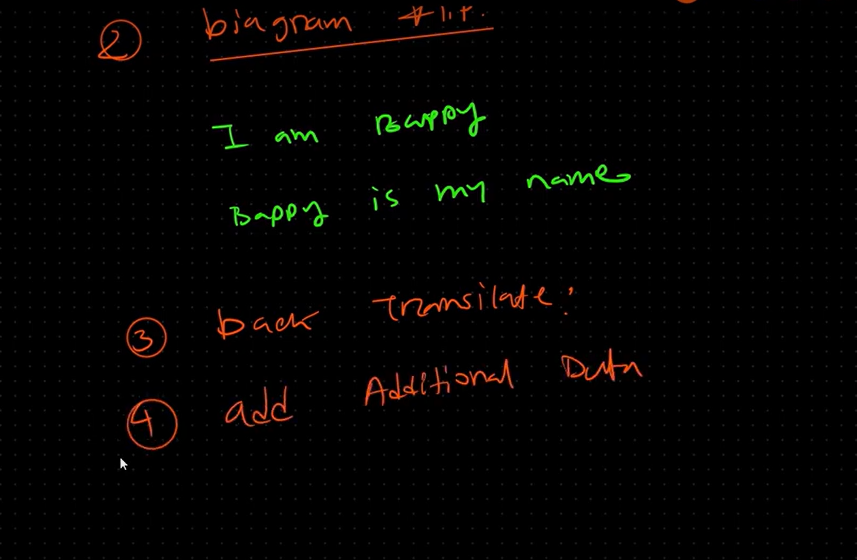 2 biagram flip.
I am Bappy
Bappy is my name
3 back Transilate:
4 add Additional Data